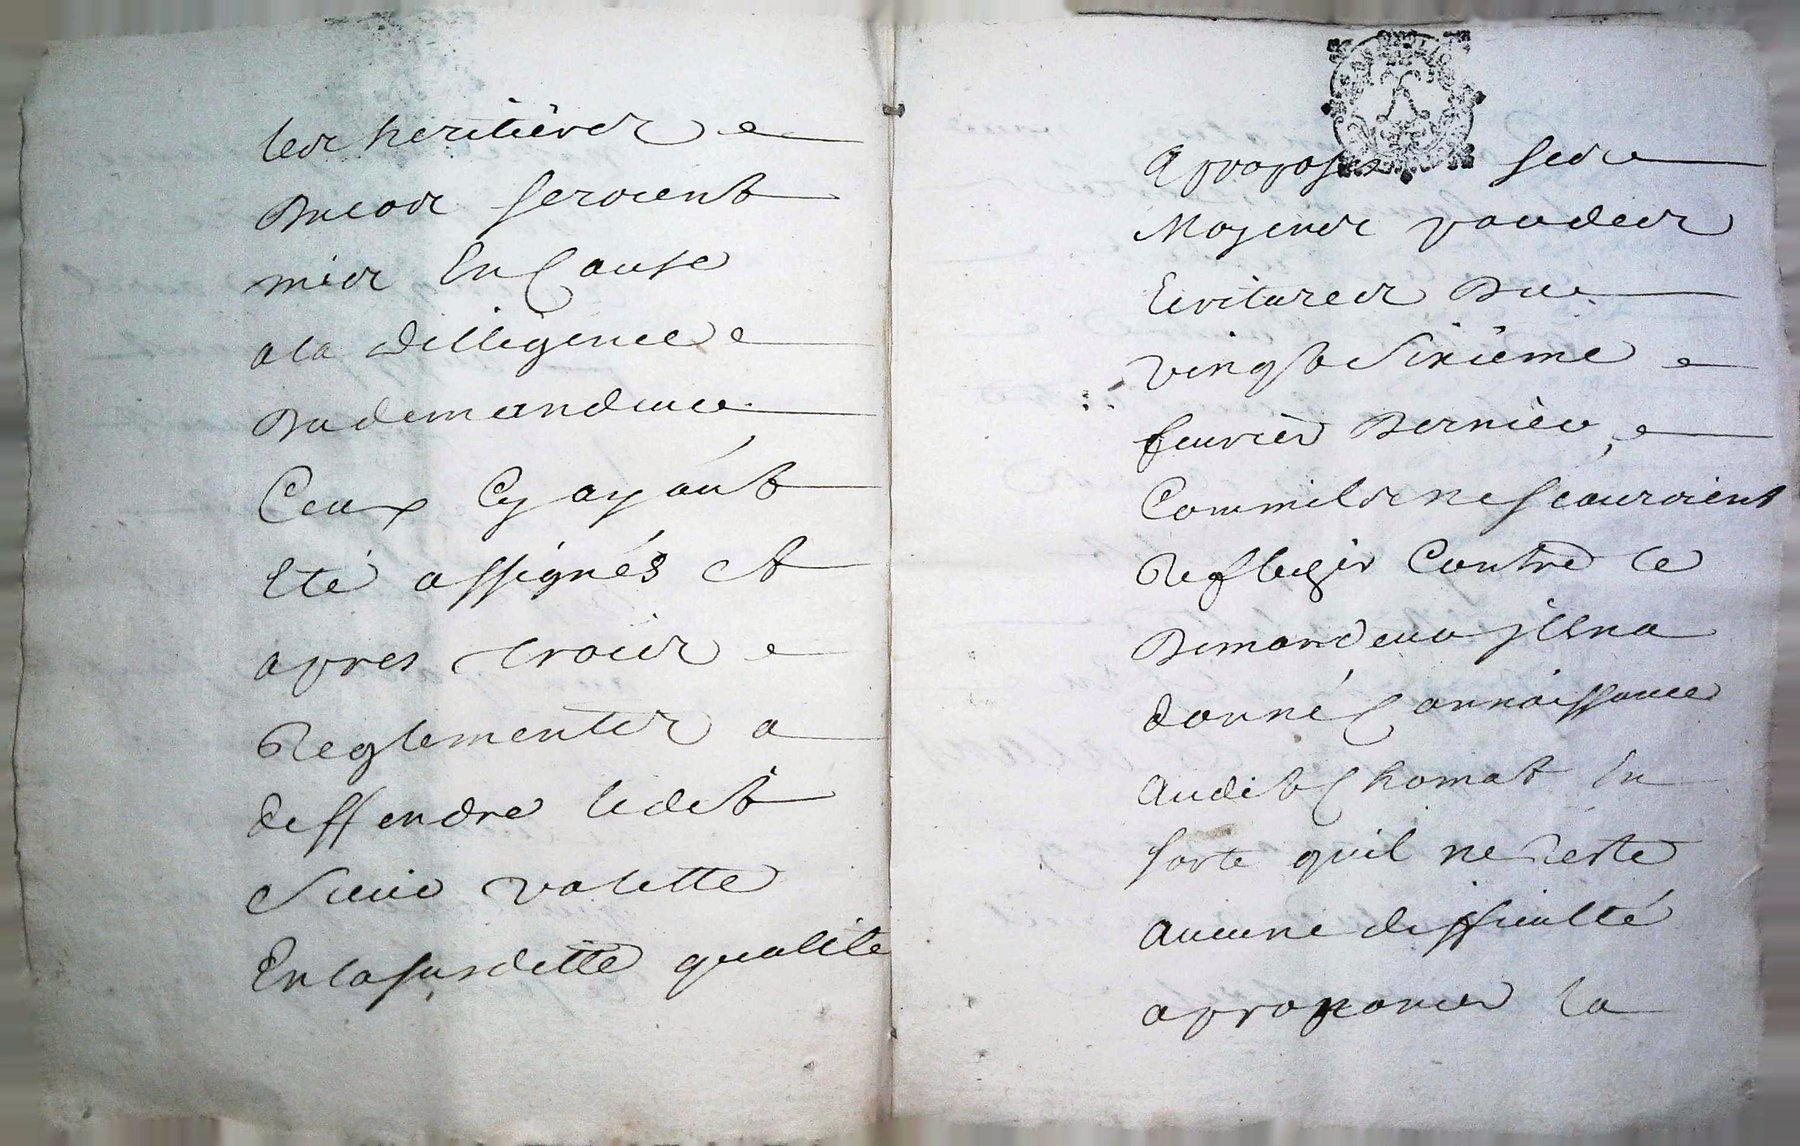 les heritiers
Ducos seroient
mis En Cause
a la dilligence
Du demandeur
Ceux Cy ayant
Eté assignés et
apres trois
Reglements a
deffendre ledit
Sieur valette
En la susditte qualité
a proposé ses
Moyens par des
Ecritures Du
vingt Sixieme
feuvrier Dernier,
Comm ils ne scauroient
Reflechir Contre le
Demandeur jl en a
donné Connoissance
audit Chomat En
sorte quil ne reste
aucune difficulté
a prononcer la